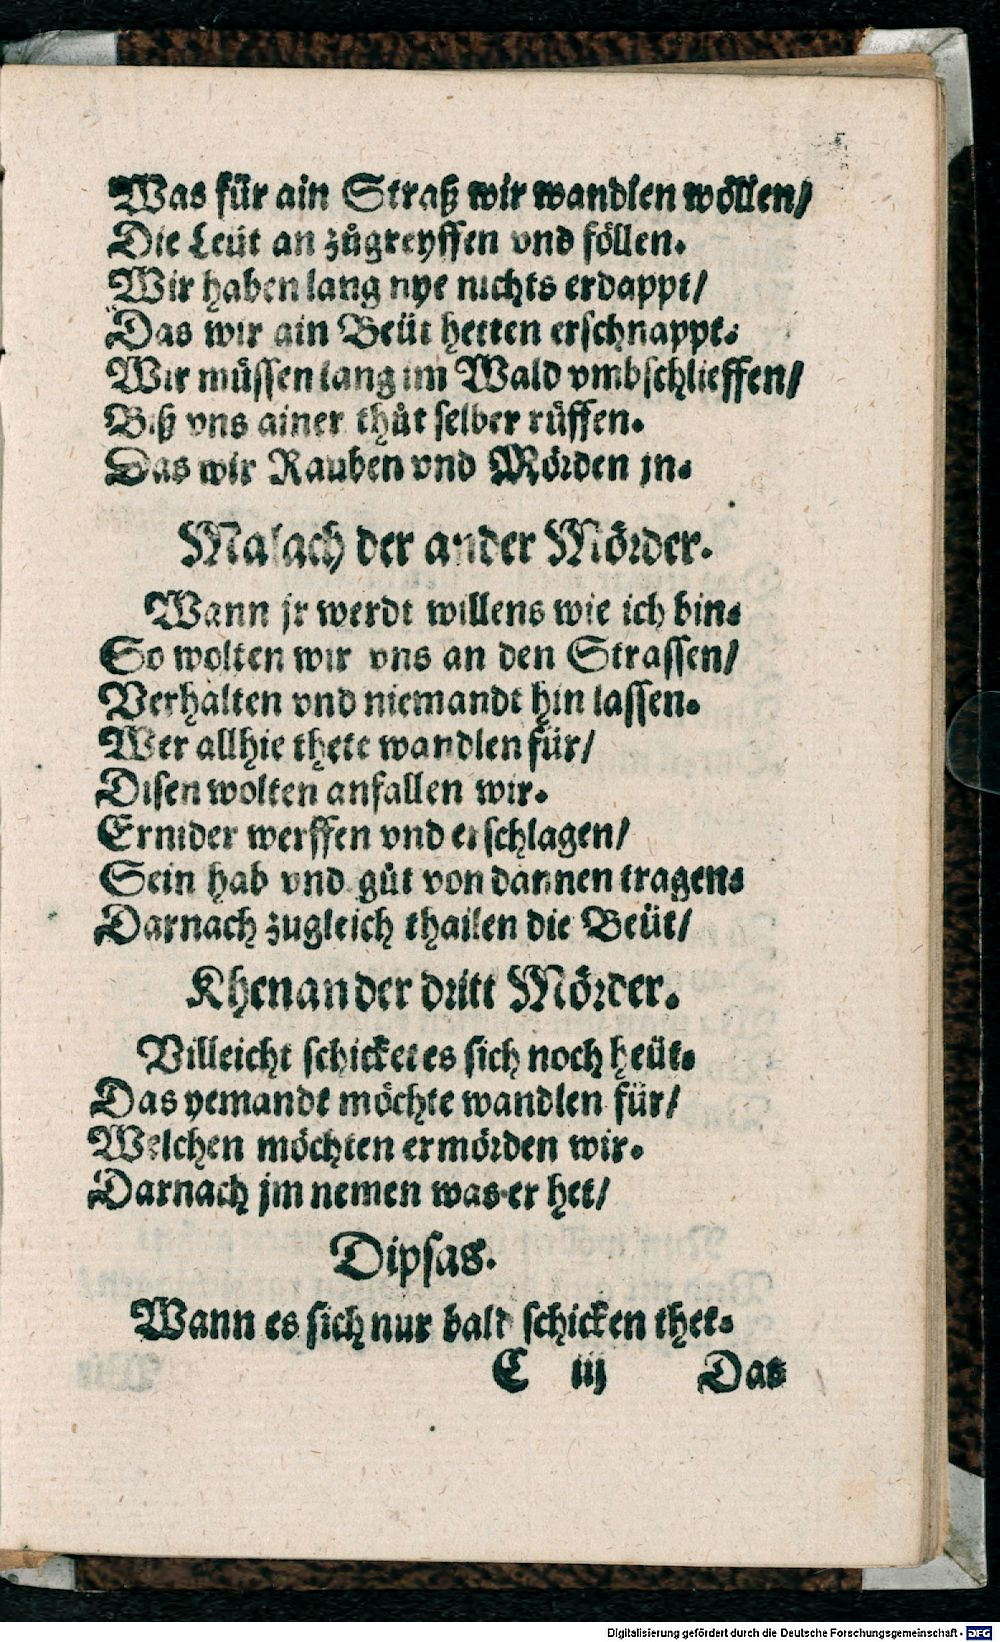 Was für ain Straß wir wandlen wöllen/
Die Leüt an zůgreyffen vnd föllen.
Wir haben lang nye nichts erdappt/
Das wir ain Beüt hetten erschnappt.
Wir müssen lang im Wald vmbschlieffen/
Biß vns ainer thůt selber rüffen.
Das wir Rauben vnd Mörden jn.
Malach der ander Mörder.
Wann jr werdt willens wie ich bin.
So wolten wir vns an den Strassen/
Verhalten vnd niemandt hin lassen.
Wer allhie thete wandlen für/
Disen wolten anfallen wir.
Ernider werffen vnd erschlagen/
Sein hab vnd gůt von dannen tragen.
Darnach zugleich thailen die Beüt/
Khenan der dritt Mörder.
Villeicht schicket es sich noch heüt.
Das yemandt möchte wandlen für/
Welchen möchten ermörden wir.
Darnach jm nemen was er het/
Dipsas.
Wann es sich nur bald schicken thet.
C iij Das
Digitalisierung gefördert durch die Deutsche Forschungsgemeinschaft - DFG